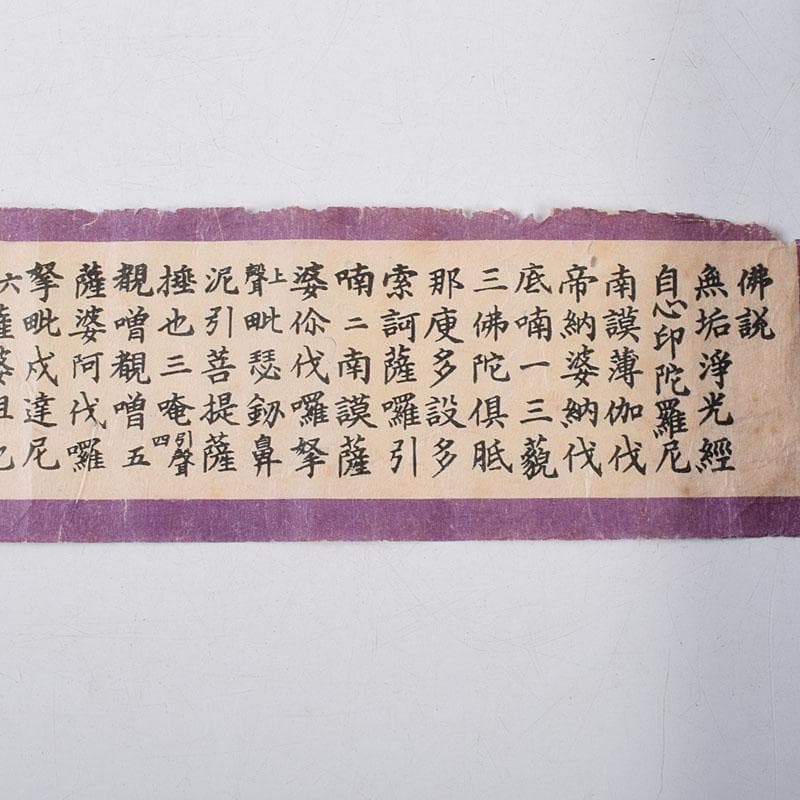 佛説
無垢淨光經
自心印陀羅尼
南謨薄伽伐
帝納婆納伐
底喃一三藐
三佛陀俱胝
那庾多設多
索訶薩囉引
喃二南謨薩
婆你伐囉拏
上聲毗瑟劒鼻
泥引菩提薩
捶也三唵引聲四
覩嚕覩嚕五
薩婆阿伐囉
拏毗戍達尼
六薩婆